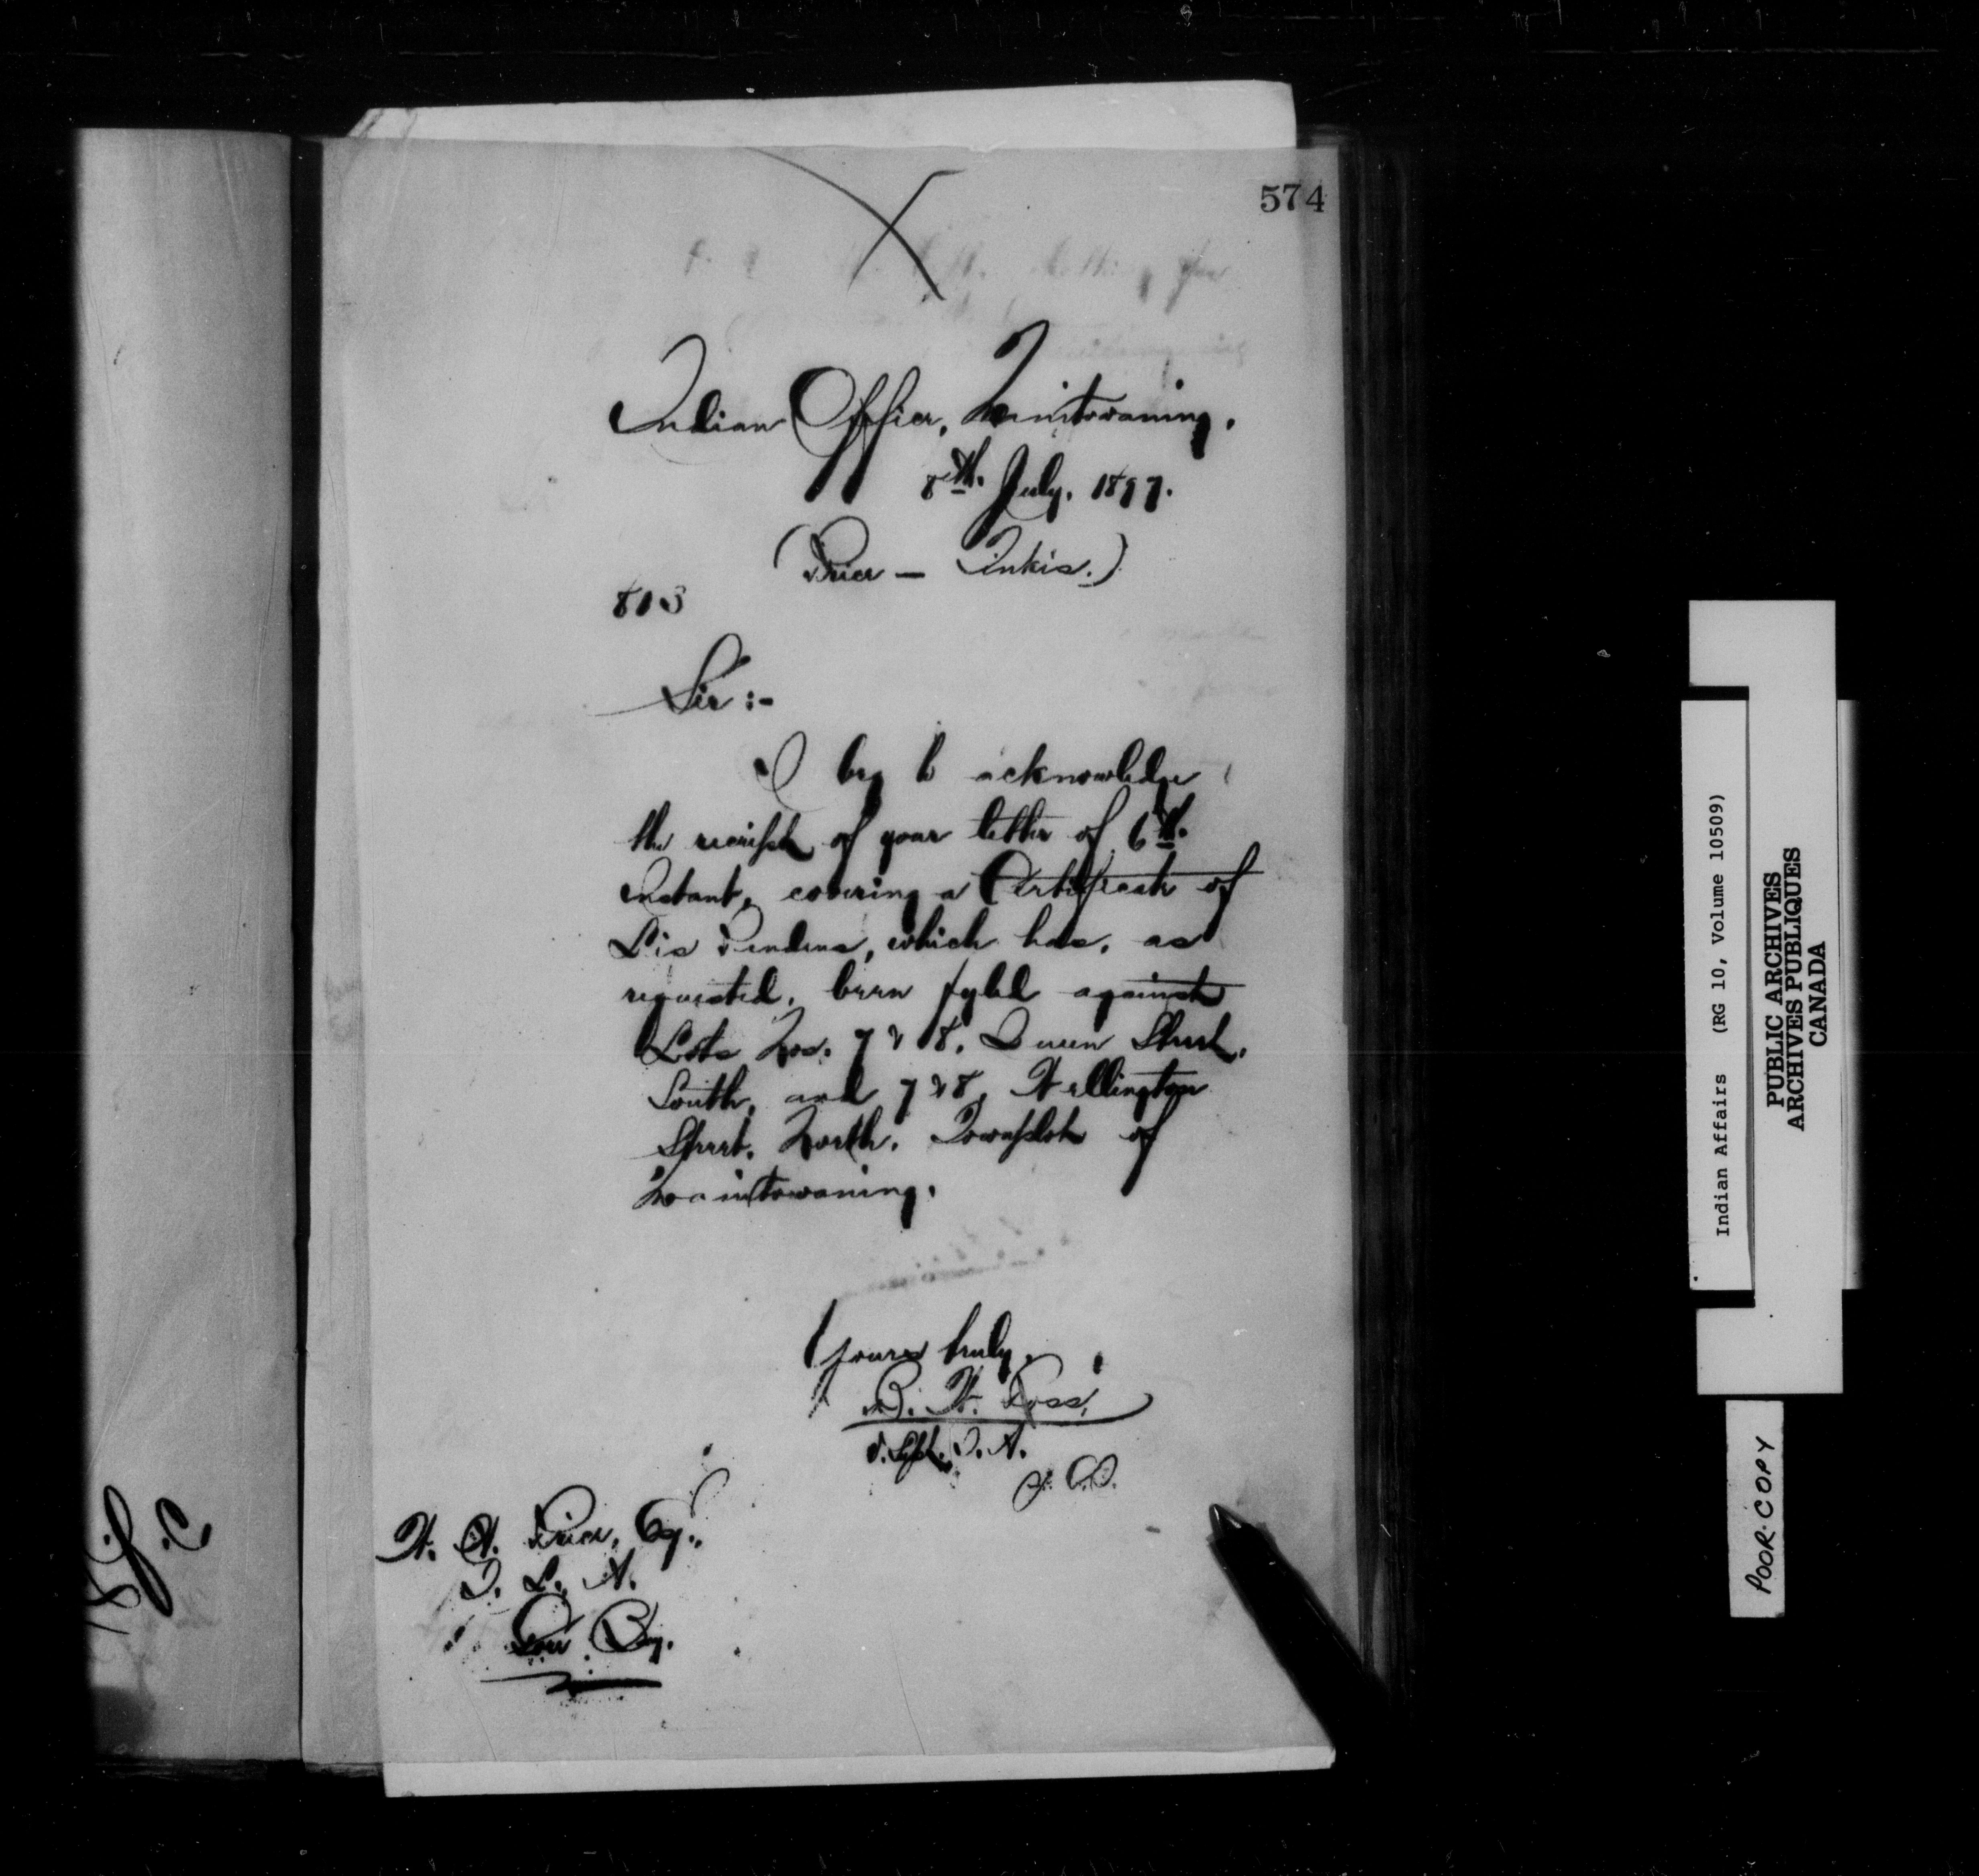 574
Indian Office, Manitowaning,
8th. July, 1897.
(Price — Tinkis.)
803
Sir:-
I beg to acknowledge
the receipt of your letter of 6th.
Instant, covering a Certificate of
Lis Pendens, which has, as
requested, been fyled against
Lots Nos. 7 & 8, Queen Street,
South, and 7 & 8, Wellington
Street, North, Townplot of
Manitowaning.
Yours truly,
B. W. Ross,
V. Supt. I. A.
W. A. Price, Esq.,
I. L. A.
Gore Bay.
Indian Affairs (RG 10, Volume 10509)
PUBLIC ARCHIVES
ARCHIVES PUBLIQUES
CANADA
POOR COPY